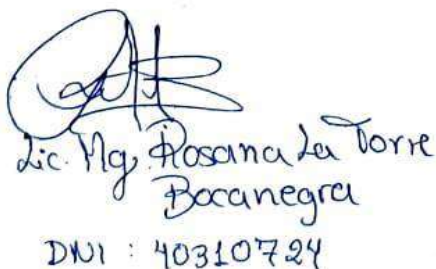 Lic. Mg. Rosana La Torre
Bocanegra
DNI : 40310724